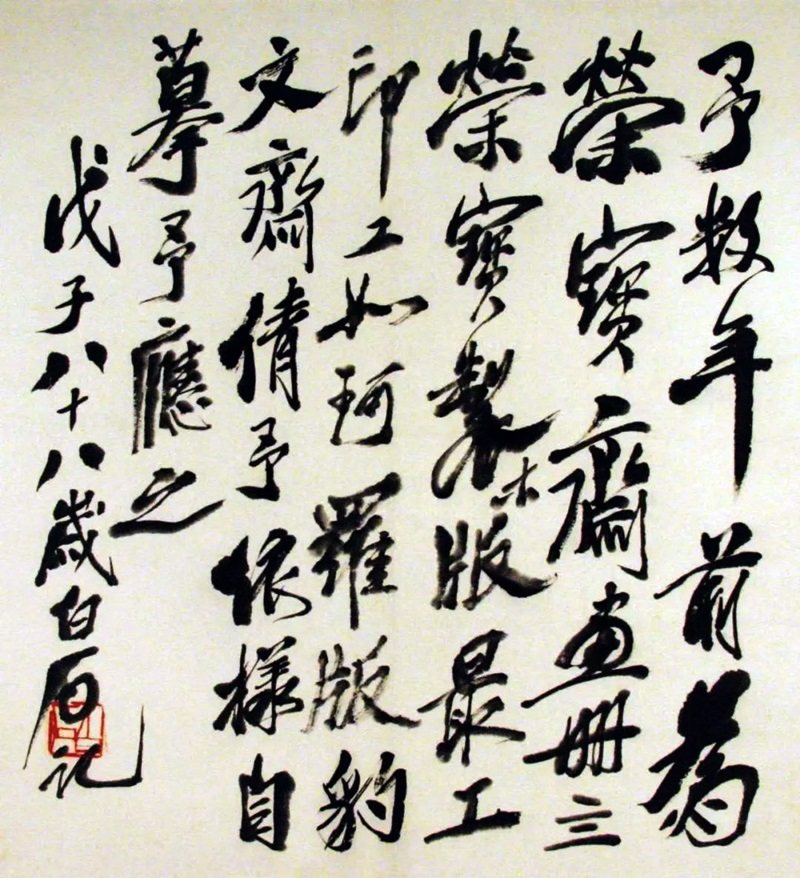 予數年前為
榮寶齋畫冊三
榮寶製木版最工
印工如珂羅版豹
文齋倩予依樣自
摹予應之
戊子八十八歲白石記